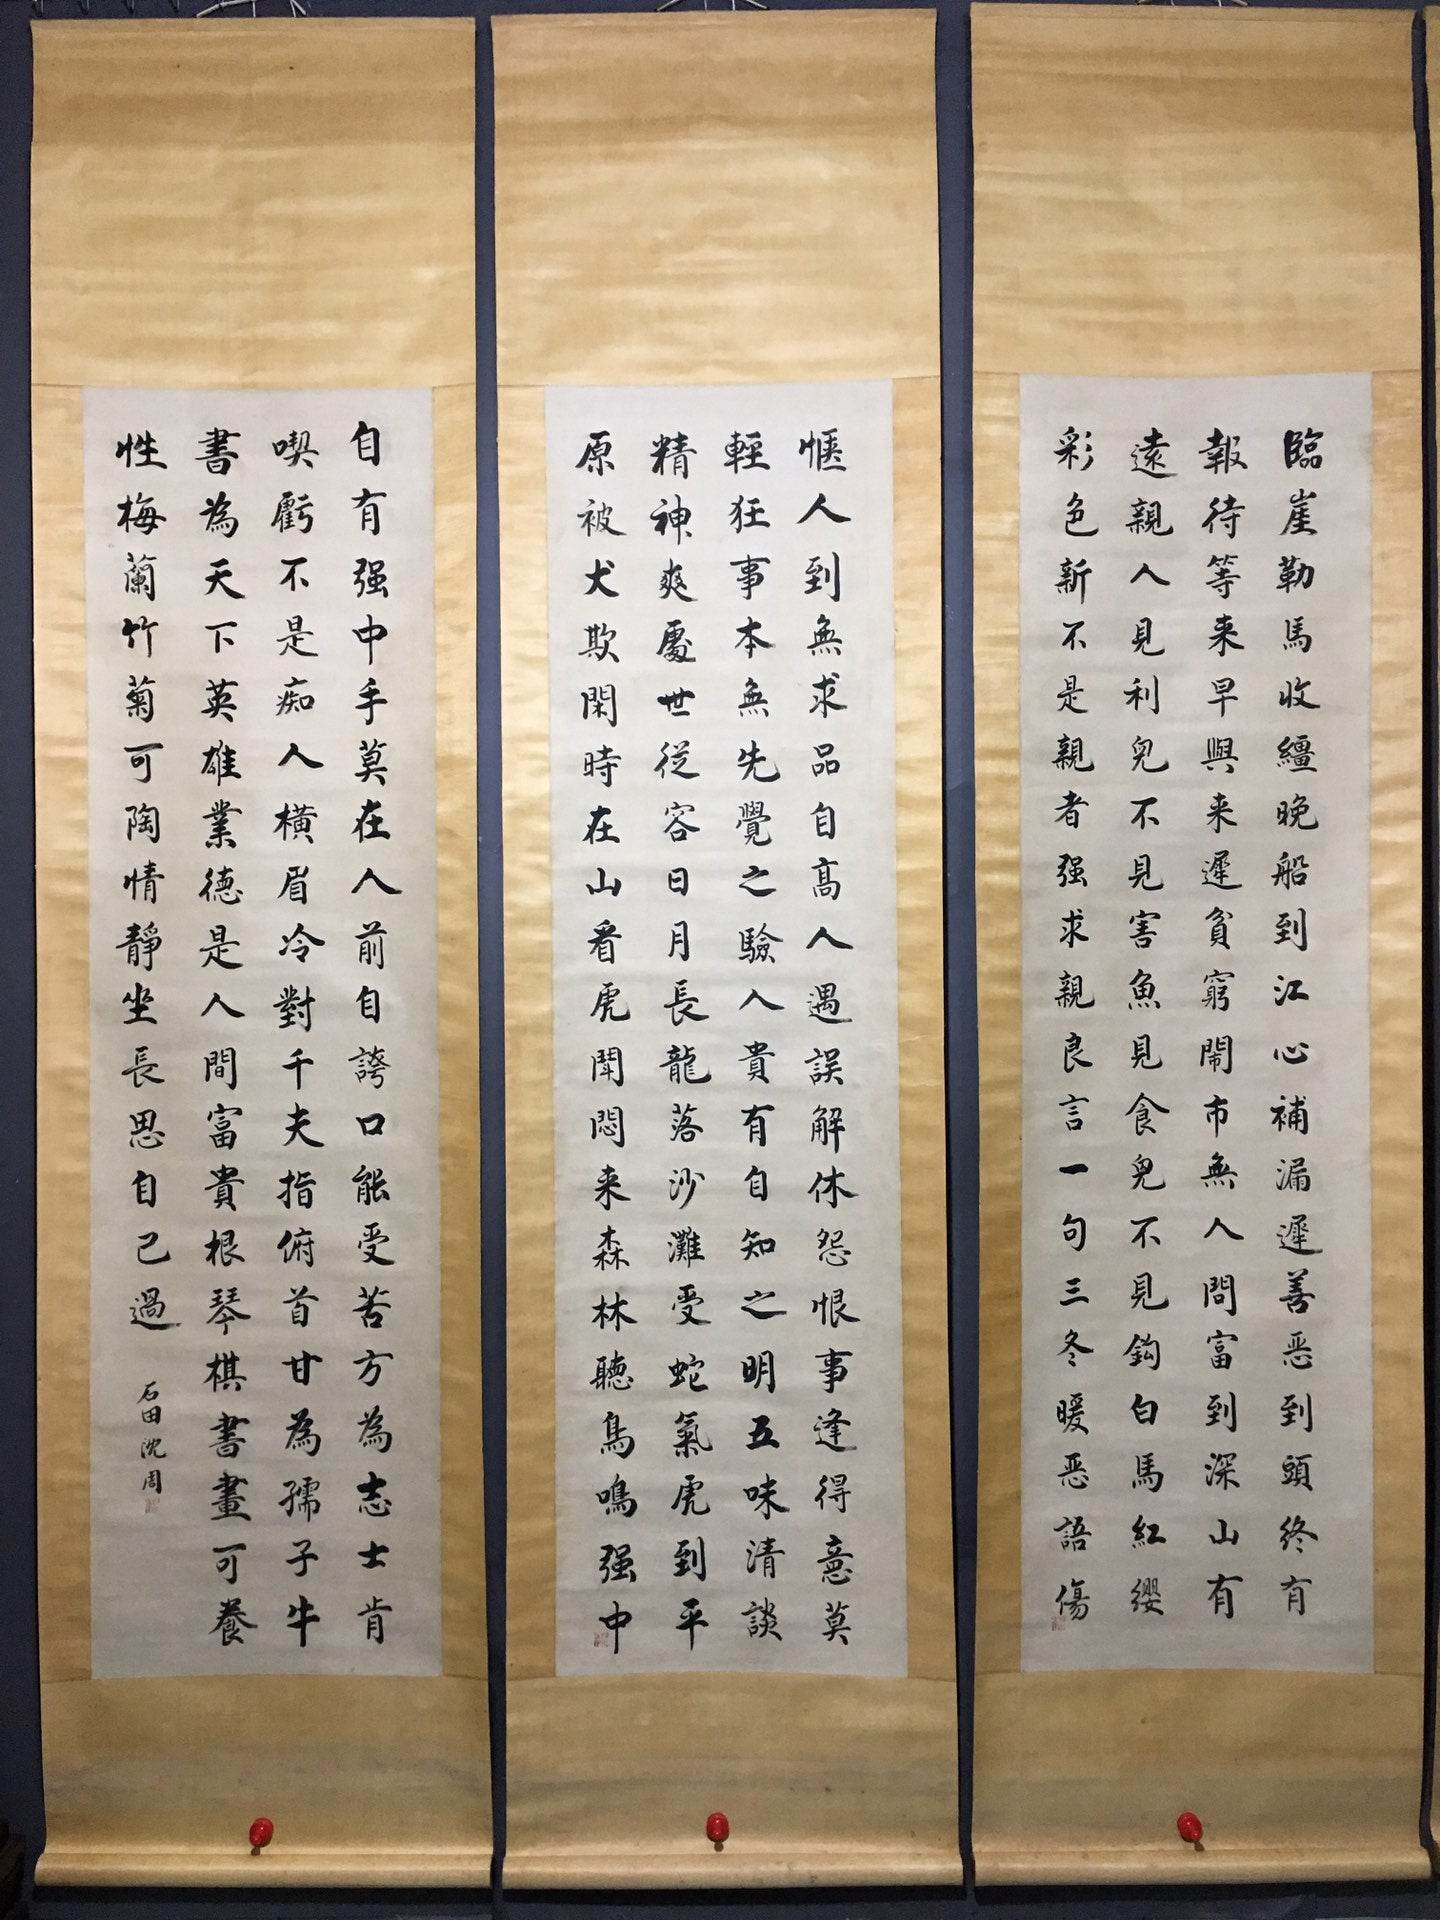 臨崖勒馬收繮晚船到江心補漏遲善恶到頭終有
報待等来早與来遲貧窮鬧市無人問富到深山有
遠親人見利児不見害魚見食児不見鈎白馬紅纓
彩色新不是親者强求親良言一句三冬暖恶語傷
愜人到無求品自高人遇誤解休怨恨事逢得意莫
輕狂事本無先覺之驗人貴有自知之明五味清談
精神爽處世従容日月長龍落沙灘受蛇氣虎到平
原被犬欺閑時在山看虎鬥悶来森林聽鳥鳴强中
自有强中手莫在人前自誇口能受苦方為志士肯
喫虧不是痴人横眉冷對千夫指俯首甘為孺子牛
書為天下英雄業德是人間富貴根琴棋書畫可養
性梅蘭竹菊可陶情靜坐長思自己過
石田沈周